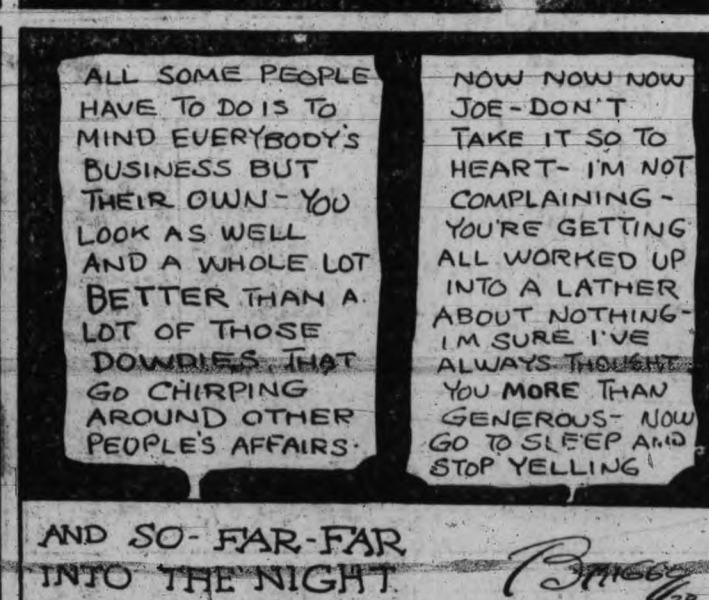 ALL SOME PEOPLE
HAVE TO DO IS TO
MIND EVERYBODY'S
BUSINESS BUT
THEIR OWN - YOU
LOOK AS WELL
AND A WHOLE LOT
BETTER THAN A
LOT OF THOSE
DOWDIES THAT
GO CHIRPING
AROUND OTHER
PEOPLE'S AFFAIRS.
NOW NOW NOW
JOE - DON'T
TAKE IT SO TO
HEART - I'M NOT
COMPLAINING -
YOU'RE GETTING
ALL WORKED UP
INTO A LATHER
ABOUT NOTHING -
I'M SURE I'VE
ALWAYS THOUGHT
YOU MORE THAN
GENEROUS - NOW
GO TO SLEEP AND
STOP YELLING
AND SO - FAR - FAR
INTO THE NIGHT
BRIGGS